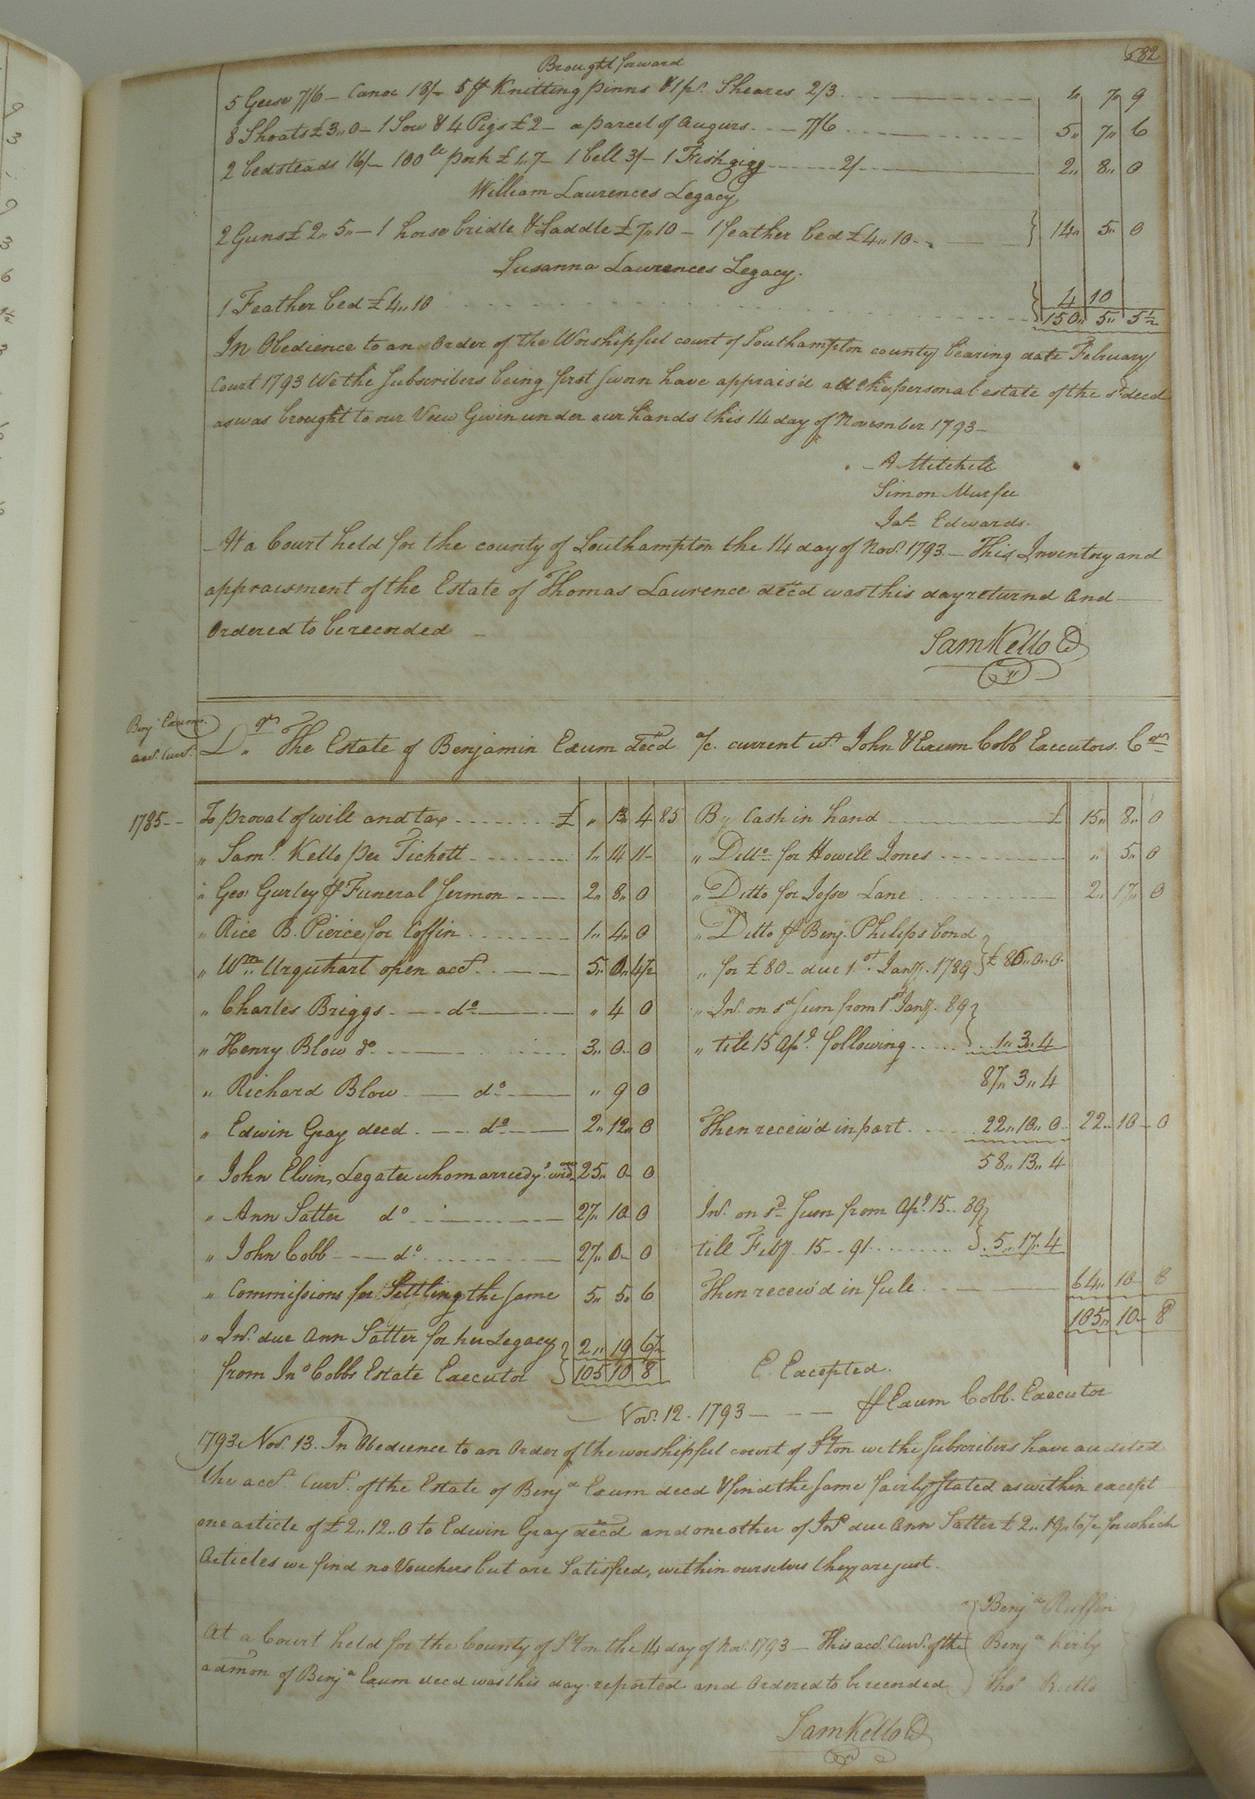 582
Brought forward
5 Geese 7/6 – Canoe 18/– 5 ff Knitting pinns & 1 pr. Sheares 2/3 1,, 7,, 9
8 Shoats £3,,0 – 1 Sow & 4 Pigs £2 – a parcel of augurs 7/6 5,, 7,, 6
2 bedsteads 16/– 100 lb pork £1,,7 – 1 bell 3/– 1 Fishgigg 2/– 2,, 8,, 0
William Laurences Legacy
2 Guns £2,,5,, – 1 horse bridle & Saddle £7,,10 – 1 feather bed £4,,10 } 14,, 5,, 0
Susanna Laurences Legacy.
1 Feather bed £4,,10 } 4 10
150,, 5,, 5½
In Obedience to an Order of the Worshipful court of Southampton county bearing date February
Court 1793 We the Subscribers being first Sworn have appraisd all the personal estate of the sd decd
as was brought to our View Given under our hands this 14 day of November 1793 –
A Mitchell
Simon Murfee
Jas. Edwards.
At a Court held for the county of Southampton the 14 day of Nov. 1793 – This Inventory and
appraisment of the Estate of Thomas Laurence decd was this day returnd and
Ordered to be recorded –
Sam Kello C
Benj. Exums
acct. Curt.
Dr. The Estate of Benjamin Exum decd a/c. current wt. John & Exum Cobb Executors. Cr.
1785 – To proval of will and tax £ ,, 13 4 85 By Cash in hand £ 15,, 8,, 0
,, Saml. Kello per Tickett 1,, 14 11 ,, Ditto for Howell Jones ,, 5,, 0
,, Geo Gurley ff Funeral Sermon 2,, 8,, 0 ,, Ditto for Jesse Lane 2,, 17,, 0
,, Rice B. Pierce for Coffin 1,, 4,, 0 ,, Ditto ff Benj. Philips bond
,, Wm. Urquhart open acct. 5,, 0,, 4½ ,, for £80 – due 1st. Jany. 1789 } £ 86,, 0,, 0
,, Charles Briggs do ,, 4 0 ,, Int. on sd sum from 1st Jany. 89
,, Henry Blow do 3,, 0 0 ,, till 15 Apl. following } 1,, 3,, 4
87,, 3,, 4
,, Richard Blow do ,, 9 0
,, Edwin Gray decd do 2,, 12,, 0 Then receiv'd in part 22,, 10,, 0 22,, 10 – 0
58,, 13,, 4
,, John Elvin, Legatee who married ye. wido. 25,, 0 0
,, Ann Satter do 27,, 10 0 Int. on sd. Sum from Apl. 15 – 89
,, John Cobb do 27,, 0 0 till Feby 15 – 91 } 5,, 17,, 4
,, Commissions for Settling the same 5,, 5,, 6 Then receiv'd in full 64,, 10 8
105,, 10 – 8
,, Int. due Ann Satter for her Legacy } 2,, 19 6½
from Jno Cobbs Estate Executor } 105 10 8 E. Excepted.
Nov. 12 – 1793 – ff Exum Cobb. Executor
1793 Nov. 13. In Obedience to an Order of the worshipful court of Ston we the Subscribers have audited
the acct. Curt. of the Estate of Benja Exum decd & find the same fairly Stated as within except
one article of £2,,12,,0 to Edwin Gray decd and one other of Int due Ann Satter £2,, 19,, 6½ for which
Articles we find no Vouchers but are Satisfied, within ourselves they are just.
Benja Ruffin
Benja Kirby
Thos Kello
At a Court held for the County of Ston the 14 day of Nov. 1793 – This acct. Curt. of the
admon of Benja Exum decd was this day reported and Ordered to be recorded
Sam Kello C